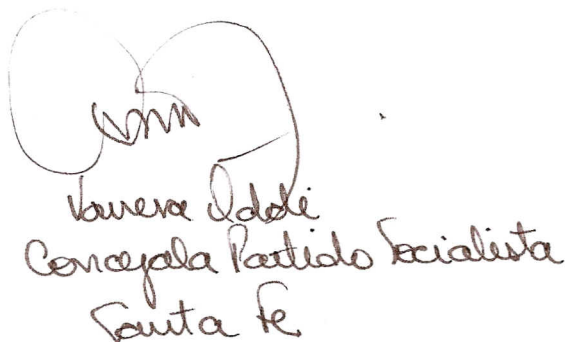 Vanesa Oddi
Concejala Partido Socialista
Santa Fe